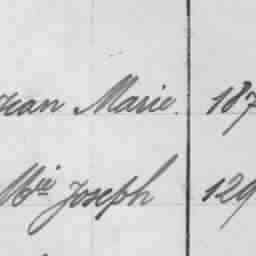 Jean Marie. 187
Mie Joseph 129